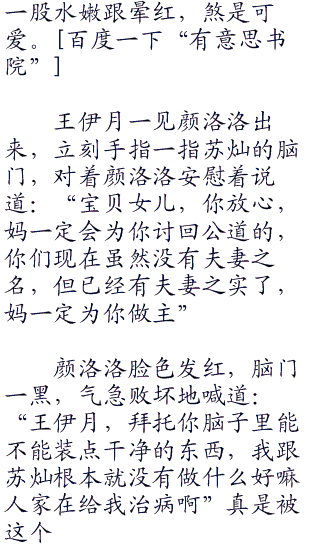 一股水嫩跟晕红，煞是可
爱。[百度一下“有意思书
院”]
王伊月一见颜洛洛出
来，立刻手指一指苏灿的脑
门，对着颜洛洛安慰着说
道：“宝贝女儿，你放心，
妈一定会为你讨回公道的，
你们现在虽然没有夫妻之
名，但已经有夫妻之实了，
妈一定为你做主”
颜洛洛脸色发红，脑门
一黑，气急败坏地喊道：
“王伊月，拜托你脑子里能
不能装点干净的东西，我跟
苏灿根本就没有做什么好嘛
人家在给我治病啊”真是被
这个